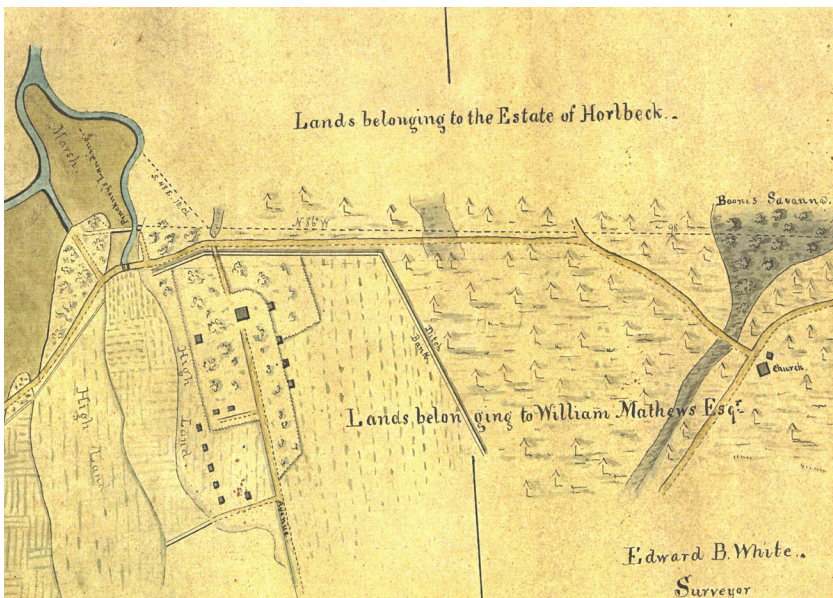 Lands belonging to the Estate of Horlbeck..
Marsh.
Landing
Boones Savanna.
N 86 W
98
Ditch
Bank.
Church.
High Land.
High Land
Lands belonging to William Mathews Esqr.
Avenue
Edward B. White..
Surveyor